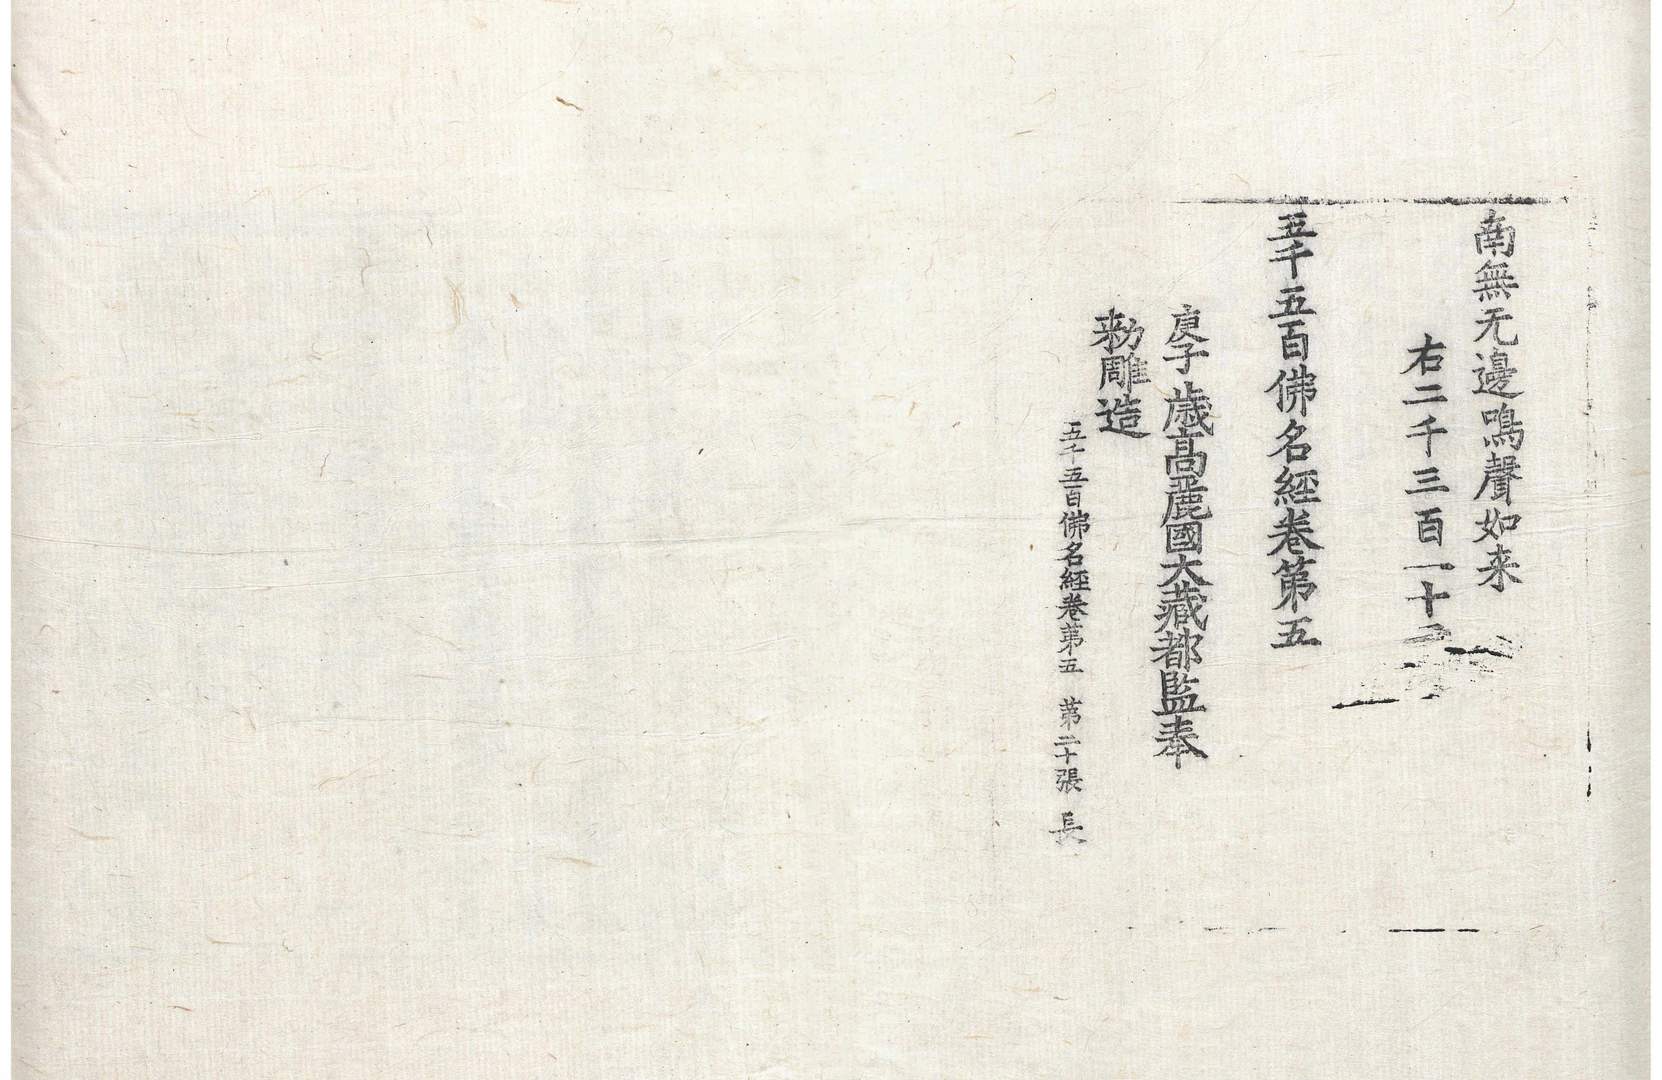 南無无邊鳴聲如来
右二千三百一十
五千五百佛名經卷第五
庚子歳高麗國大藏都監奉
勑雕造
五千五百佛名經卷第五 第二十張 長